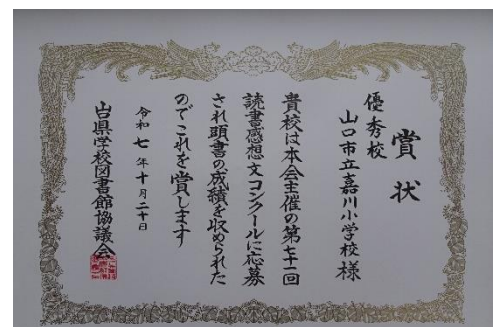 賞状
優秀校
山口市立嘉川小学校様
貴校は本会主催の第七十一回
読書感想文コンクールに応募
され頭書の成績を収められた
のでこれを賞します
令和七年十月二十日
山口県学校図書館協議会